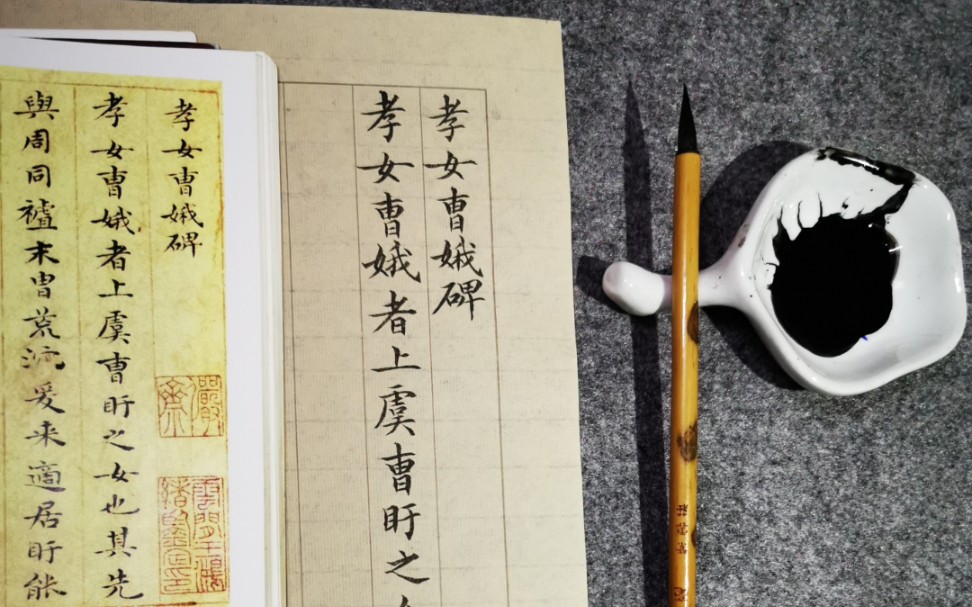 孝女曹娥碑
孝女曹娥者上虞曹盱之
孝女曹娥碑
孝女曹娥者上虞曹盱之女也其先
與周同祖末胄荒沉爰来適居盱能